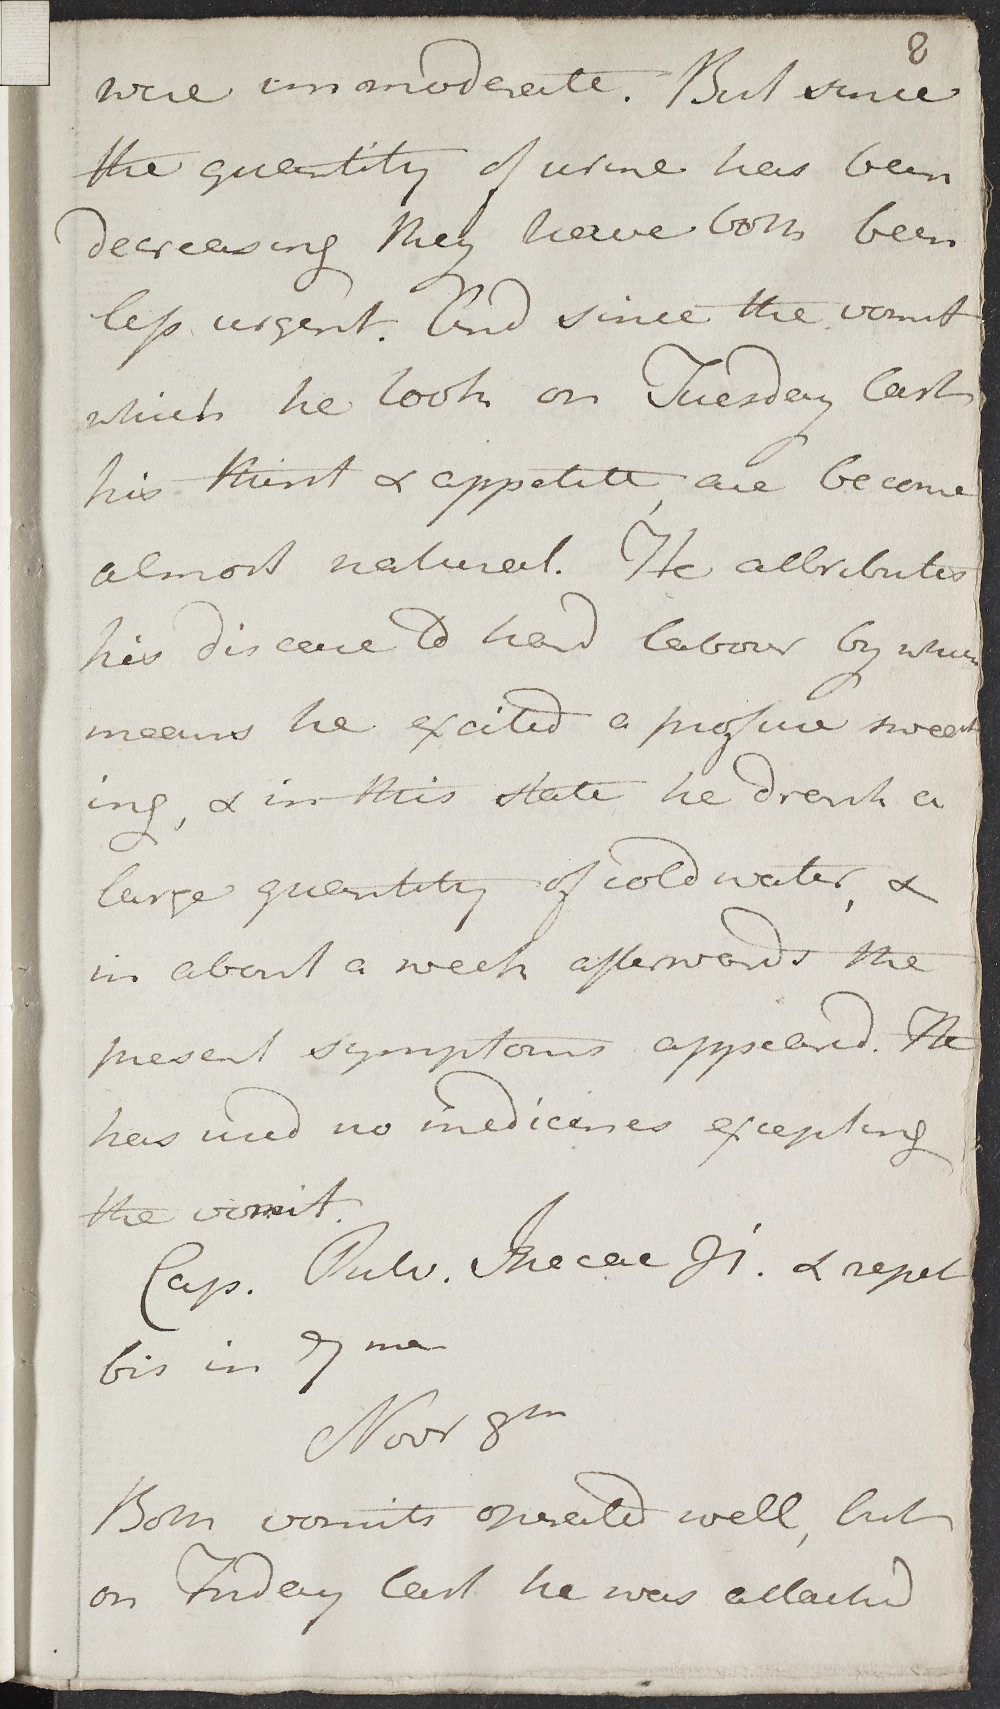 8
were immoderate. But since
the quantity of urine has been
decreasing they have both been
less urgent. And since the vomit
which he took on Tuesday last
his thirst & appetite, are become
almost natural. He attributes
his disease to hard labour by which
means he excited a profuse sweat
ing, & in this state he drank a
large quantity of cold water, &
in about a week afterwards the
present symptoms appeared. He
has used no medicines excepting
the vomit.
Cap. Pulv. Ipecac ʒi. & repet
bis in 7ma
Novr 8th
Both vomits operated well, but
on Friday last he was attacked